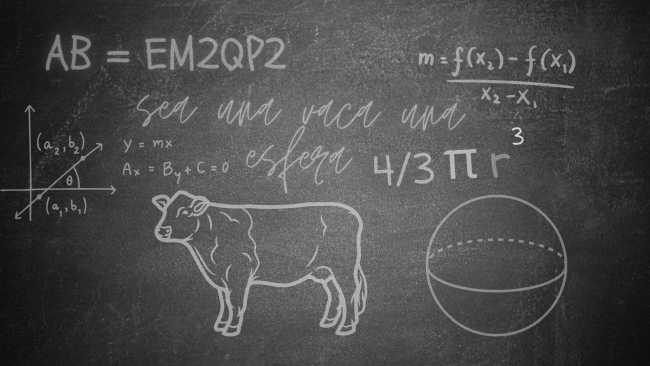 AB = EM2QP2
m = f(x₂) - f(x₁)
x₂ - x₁
sea una vaca una
esfera
4/3 π r³
(a₂, b₂)
y = mx
Aₓ = Bᵧ + C = 0
θ
(a₁, b₁)